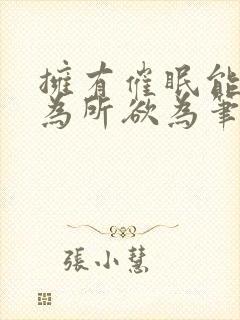 擁有催眠能
為所欲為筆
張小慧